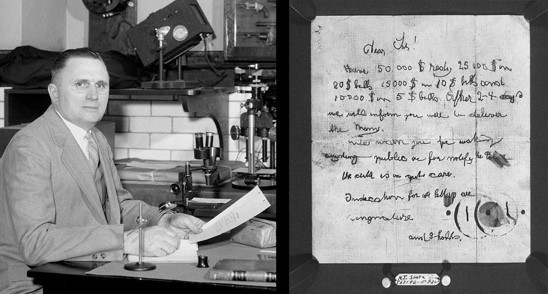 Dear Sir!
Have 50.000 $ redy 25 000 $ in
20 $ bills 15000 $ in 10 $ bills and
10000 $ in 5 $ bills. After 2-4 days
we will inform you were to deliver
the Mony.
We warn you for making
anyding public or for notify the
the child is in gut care.
Indication for all letters are
singnature
and 3 holds.
N.J. State